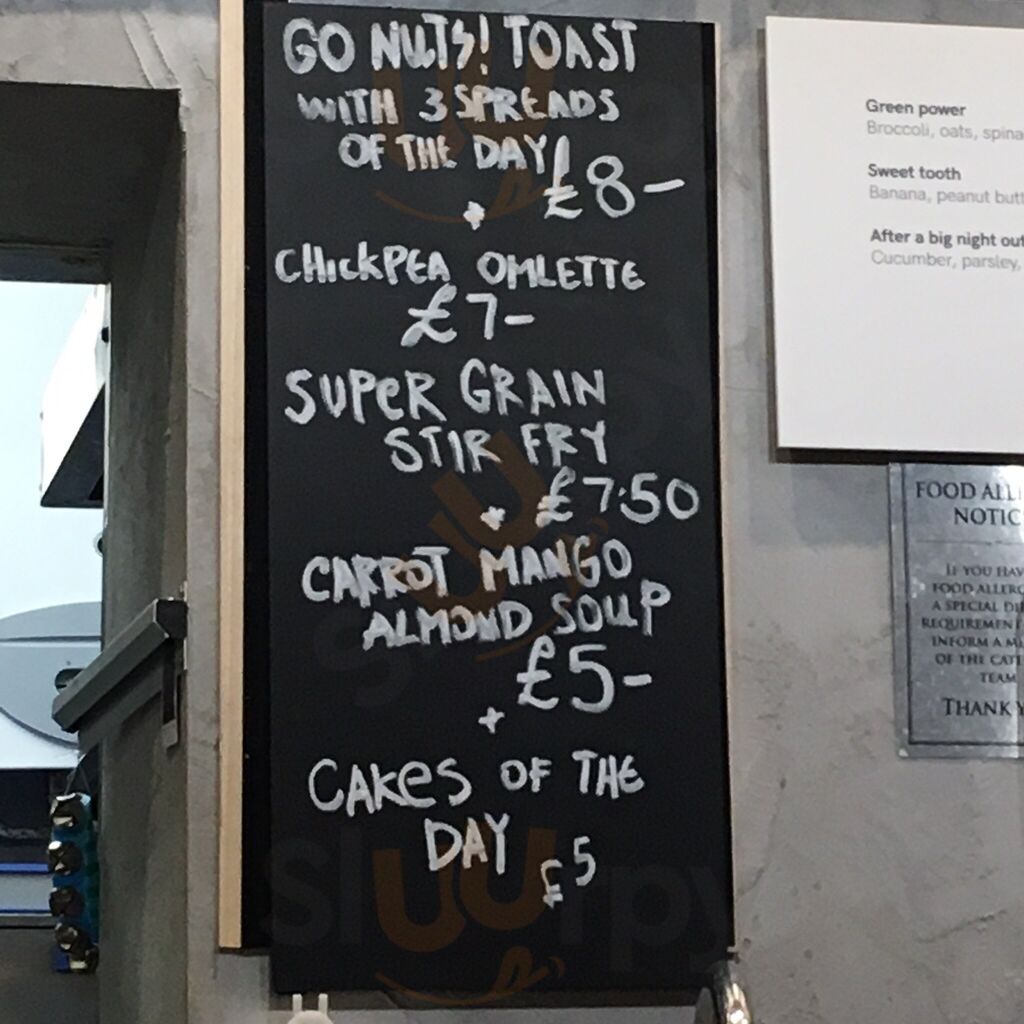 GO NUTS! TOAST
WITH 3 SPREADS
OF THE DAY
£8-
+
CHICKPEA OMLETTE
£7-
SUPER GRAIN
STIR FRY
+ £7.50
CARROT MANGO
ALMOND SOUP
£5-
+
CAKES OF THE
DAY £5
Green power
Broccoli, oats,
Sweet tooth
Banana, peanut
After a big night out
Cucumber, parsley,
FOOD
IF YOU
FOOD
A SPECIAL
INFORM A
OF THE
TEAM
THANK
Sluurpy